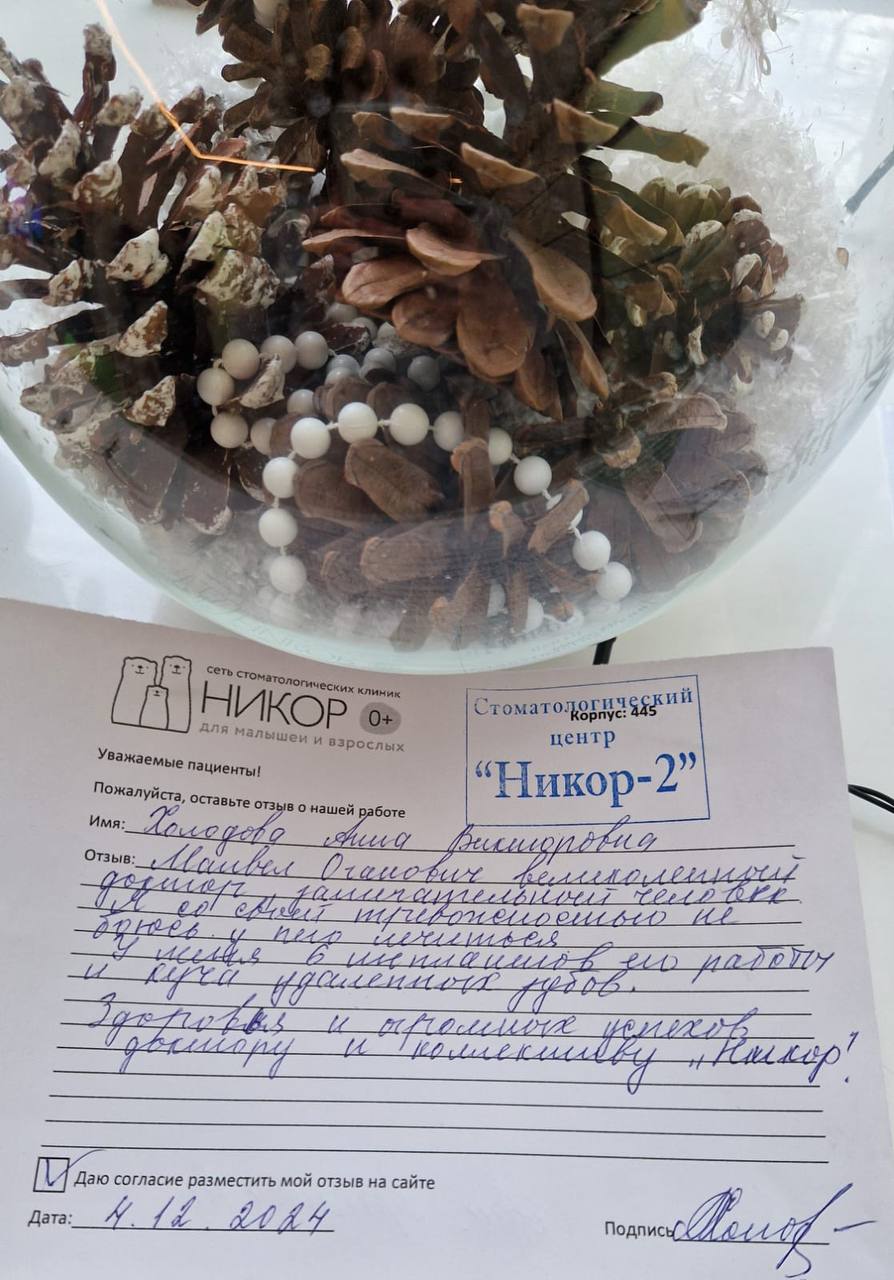 сеть стоматологических клиник
НИКОР 0+
для малышей и взрослых
Стоматологический
Корпус: 445
центр
“Никор-2”
Уважаемые пациенты!
Пожалуйста, оставьте отзыв о нашей работе
Имя: Холодова Анна Викторовна
Отзыв: Манвел Оганович великолепный
доктор, замечательный человек.
Я со своей тревожностью не
боюсь у него лечиться
У меня 6 имплантов его работы
и куча удаленных зубов.
Здоровья и огромных успехов
доктору и коллективу „Никор"!
Даю согласие разместить мой отзыв на сайте
Дата: 4.12.2024
Подпись